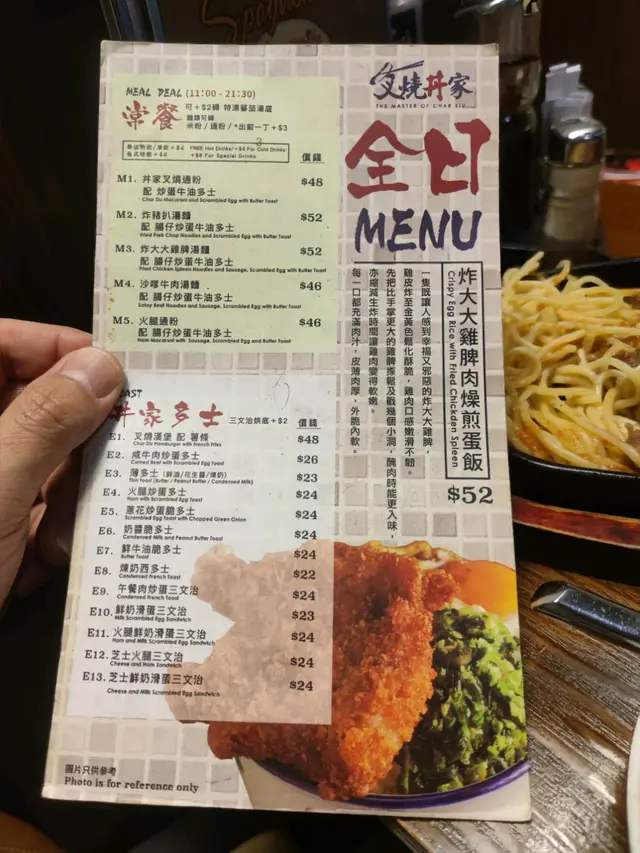 Spaghe
叉燒丼家
THE MASTER OF CHAR SIU
全日
MENU
MEAL DEAL (11:00 - 21:30)
常餐
可+$2轉 特濃蕃茄湯底
麵類可轉
米粉 / 通粉 / *出前一丁 +$3
FREE Hot Drinks/ +$4 For Cold Drinks
+$8 For Special Drinks
3
價錢
M1. 丼家叉燒通粉 $48
配 炒蛋牛油多士
Char Siu Macaroni and Scrambled Egg with Butter Toast
M2. 炸豬扒湯麵 $52
配 腸仔炒蛋牛油多士
Fried Pork Chop Noodles and Scrambled Egg with Butter Toast
M3. 炸大大雞脾湯麵 $52
配 腸仔炒蛋牛油多士
Fried Chicken Spleen Noodles and Sausage, Scambled Egg with Butter Toast
M4. 沙嗲牛肉湯麵 $46
配 腸仔炒蛋牛油多士
Satay Beef Noodles and Sausage, Scrambled Egg with Butter Toast
M5. 火腿通粉 $46
配 腸仔炒蛋牛油多士
Ham Macaroni with Sausage, Scrambled Egg and Butter Toast
炸大大雞脾肉燥煎蛋飯
Crispy Egg Rice with Fried Chickden Spleen
$52
一隻既讓人感到幸福又邪惡的炸大大雞脾，
雞皮炸至金黃色鬆化酥脆，雞肉口感嫩滑不韌。
先把比手掌更大的雞髀撐鬆及戳幾個小洞，醃肉時能更入味，
亦縮減生炸時間讓雞肉變得軟嫩。
每一口都充滿肉汁，皮薄肉厚，外脆內軟。
AST
丼家多士
三文治烘底 +$2
價錢
E1. 叉燒漢堡 配 薯條 $48
Char Siu Hamburger with French Fries
E2. 咸牛肉炒蛋多士 $26
Corned Beef with Scrambled Egg Toast
E3. 薄多士 (鮮油/花生醬/煉奶) $23
Thin Toast (Butter / Peanut Butter / Condensed Milk)
E4. 火腿炒蛋多士 $24
Ham with Scrambled Egg Toast
E5. 蔥花炒蛋脆多士 $24
Scrambled Egg Toast with Chopped Green Onion
E6. 奶醬脆多士 $24
Condensed Milk and Peanut Butter Toast
E7. 鮮牛油脆多士 $24
Butter Toast
E8. 煉奶西多士 $22
Condensed French Toast
E9. 午餐肉炒蛋三文治 $24
E10. 鮮奶滑蛋三文治 $23
Milk Scrambled Egg Sandwich
E11. 火腿鮮奶滑蛋三文治 $24
Ham and Milk Scrambled Egg Sandwich
E12. 芝士火腿三文治 $24
Cheese and Ham Sandwich
E13. 芝士鮮奶滑蛋三文治 $24
Cheese and Milk Scrambled Egg Sandwich
圖片只供參考
Photo is for reference only